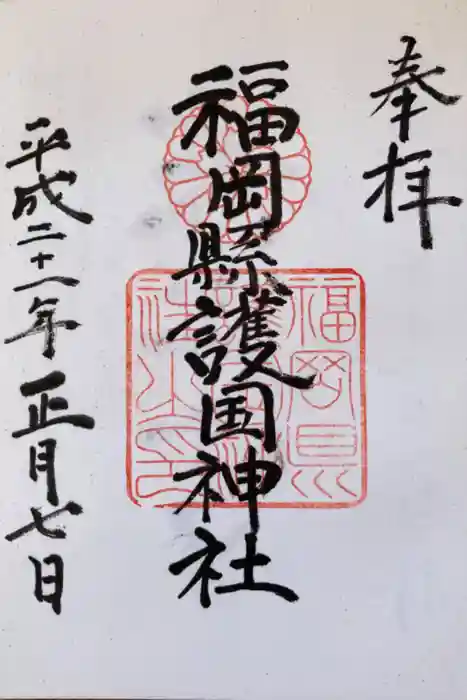 奉拝
福岡縣護国神社
平成二十一年一正月七日